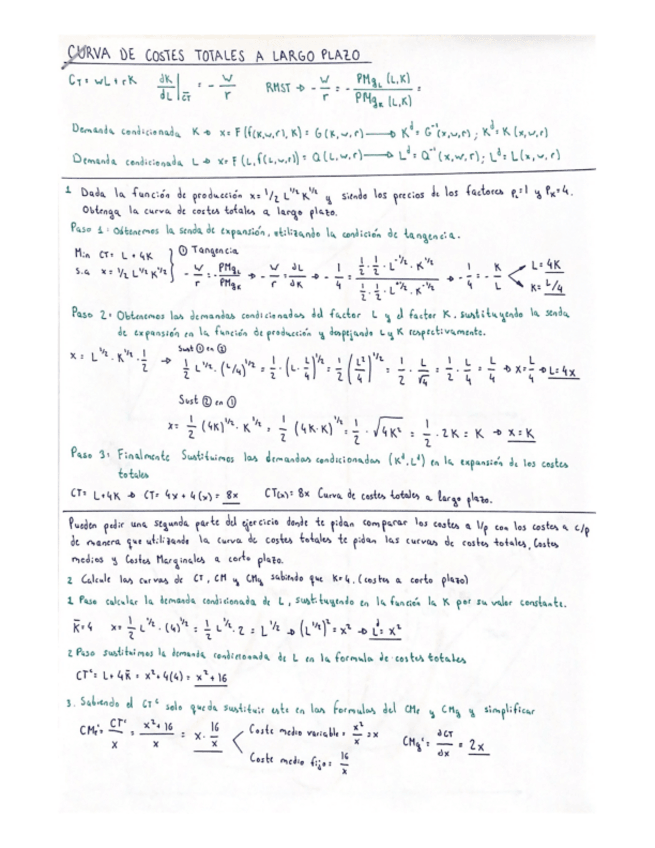 CURVA DE COSTES TOTALES A LARGO PLAZO
CT = wL + rK   dK/dL |CT = - w/r   RMST → - w/r = - PMgL (L,K) / PMgK (L,K) =
Demanda condicionada K → x = F(f(K,w,r), K) = G(K,w,r) ⟶ Kᵈ = G⁻¹(x,w,r) ; Kᵈ = K(x,w,r)
Demanda condicionada L → x = F(L, f(L,w,r)) = Q(L,w,r) ⟶ Lᵈ = Q⁻¹(x,w,r) ; Lᵈ = L(x,w,r)
1 Dada la función de producción x = 1/2 L^1/2 K^1/2 y siendo los precios de los factores PL = 1 y PK = 4.
Obtenga la curva de costes totales a largo plazo.
Paso 1: Obtenemos la senda de expansión, utilizando la condición de tangencia.
Min CT = L + 4K   ① Tangencia
s.a x = 1/2 L^1/2 K^1/2   - w/r = - PMgL/PMgK → - w/r = ∂L/∂K → - 1/4 = (1/2 · 1/2 · L^-1/2 · K^1/2) / (1/2 · 1/2 · L^+1/2 · K^-1/2) → - 1/4 = - K/L   L = 4K   K = L/4
Paso 2: Obtenemos las demandas condicionadas del factor L y el factor K, sustituyendo la senda
de expansión en la función de producción y despejando L y K respectivamente.
Sust ① en ②
x = L^1/2 · K^1/2 · 1/2 → 1/2 L^1/2 · (L/4)^1/2 = 1/2 · (L · L/4)^1/2 = 1/2 (L²/4)^1/2 = 1/2 · L/√4 = 1/2 · L/2 = L/4 → x = L/4 → L = 4x
Sust ② en ①
x = 1/2 (4K)^1/2 · K^1/2 = 1/2 (4K·K)^1/2 = 1/2 · √4K² = 1/2 · 2K = K → x = K
Paso 3: Finalmente Sustituimos las demandas condicionadas (Kᵈ, Lᵈ) en la expansión de los costes
totales
CT = L + 4K → CT = 4x + 4(x) = 8x   CT(x) = 8x Curva de costes totales a largo plazo.
Pueden pedir una segunda parte del ejercicio donde te pidan comparar los costes a l/p con los costes a c/p
de manera que utilizando la curva de costes totales te pidan las curvas de costes totales, Costes
medios y Costes Marginales a corto plazo.
2 Calcule las curvas de CT, CM y CMg sabiendo que K = 4. (costes a corto plazo)
1 Paso calcular la demanda condicionada de L, sustituyendo en la función la K por su valor constante.
K̄ = 4   x = 1/2 L^1/2 · (4)^1/2 = 1/2 L^1/2 · 2 = L^1/2 → (L^1/2)² = x² → Lᵈ = x²
2 Paso sustituimos la demanda condicionada de L en la formula de costes totales
CTᶜ = L + 4K̄ = x² + 4(4) = x² + 16
3. Sabiendo el CTᶜ solo queda sustituir este en las formulas del CMe y CMg y simplificar
CMeᶜ = CTᶜ/x = x² + 16 / x = x · 16/x   Coste medio variable = x²/x = x   CMgᶜ = ∂CT/∂x = 2x
Coste medio fijo = 16/x